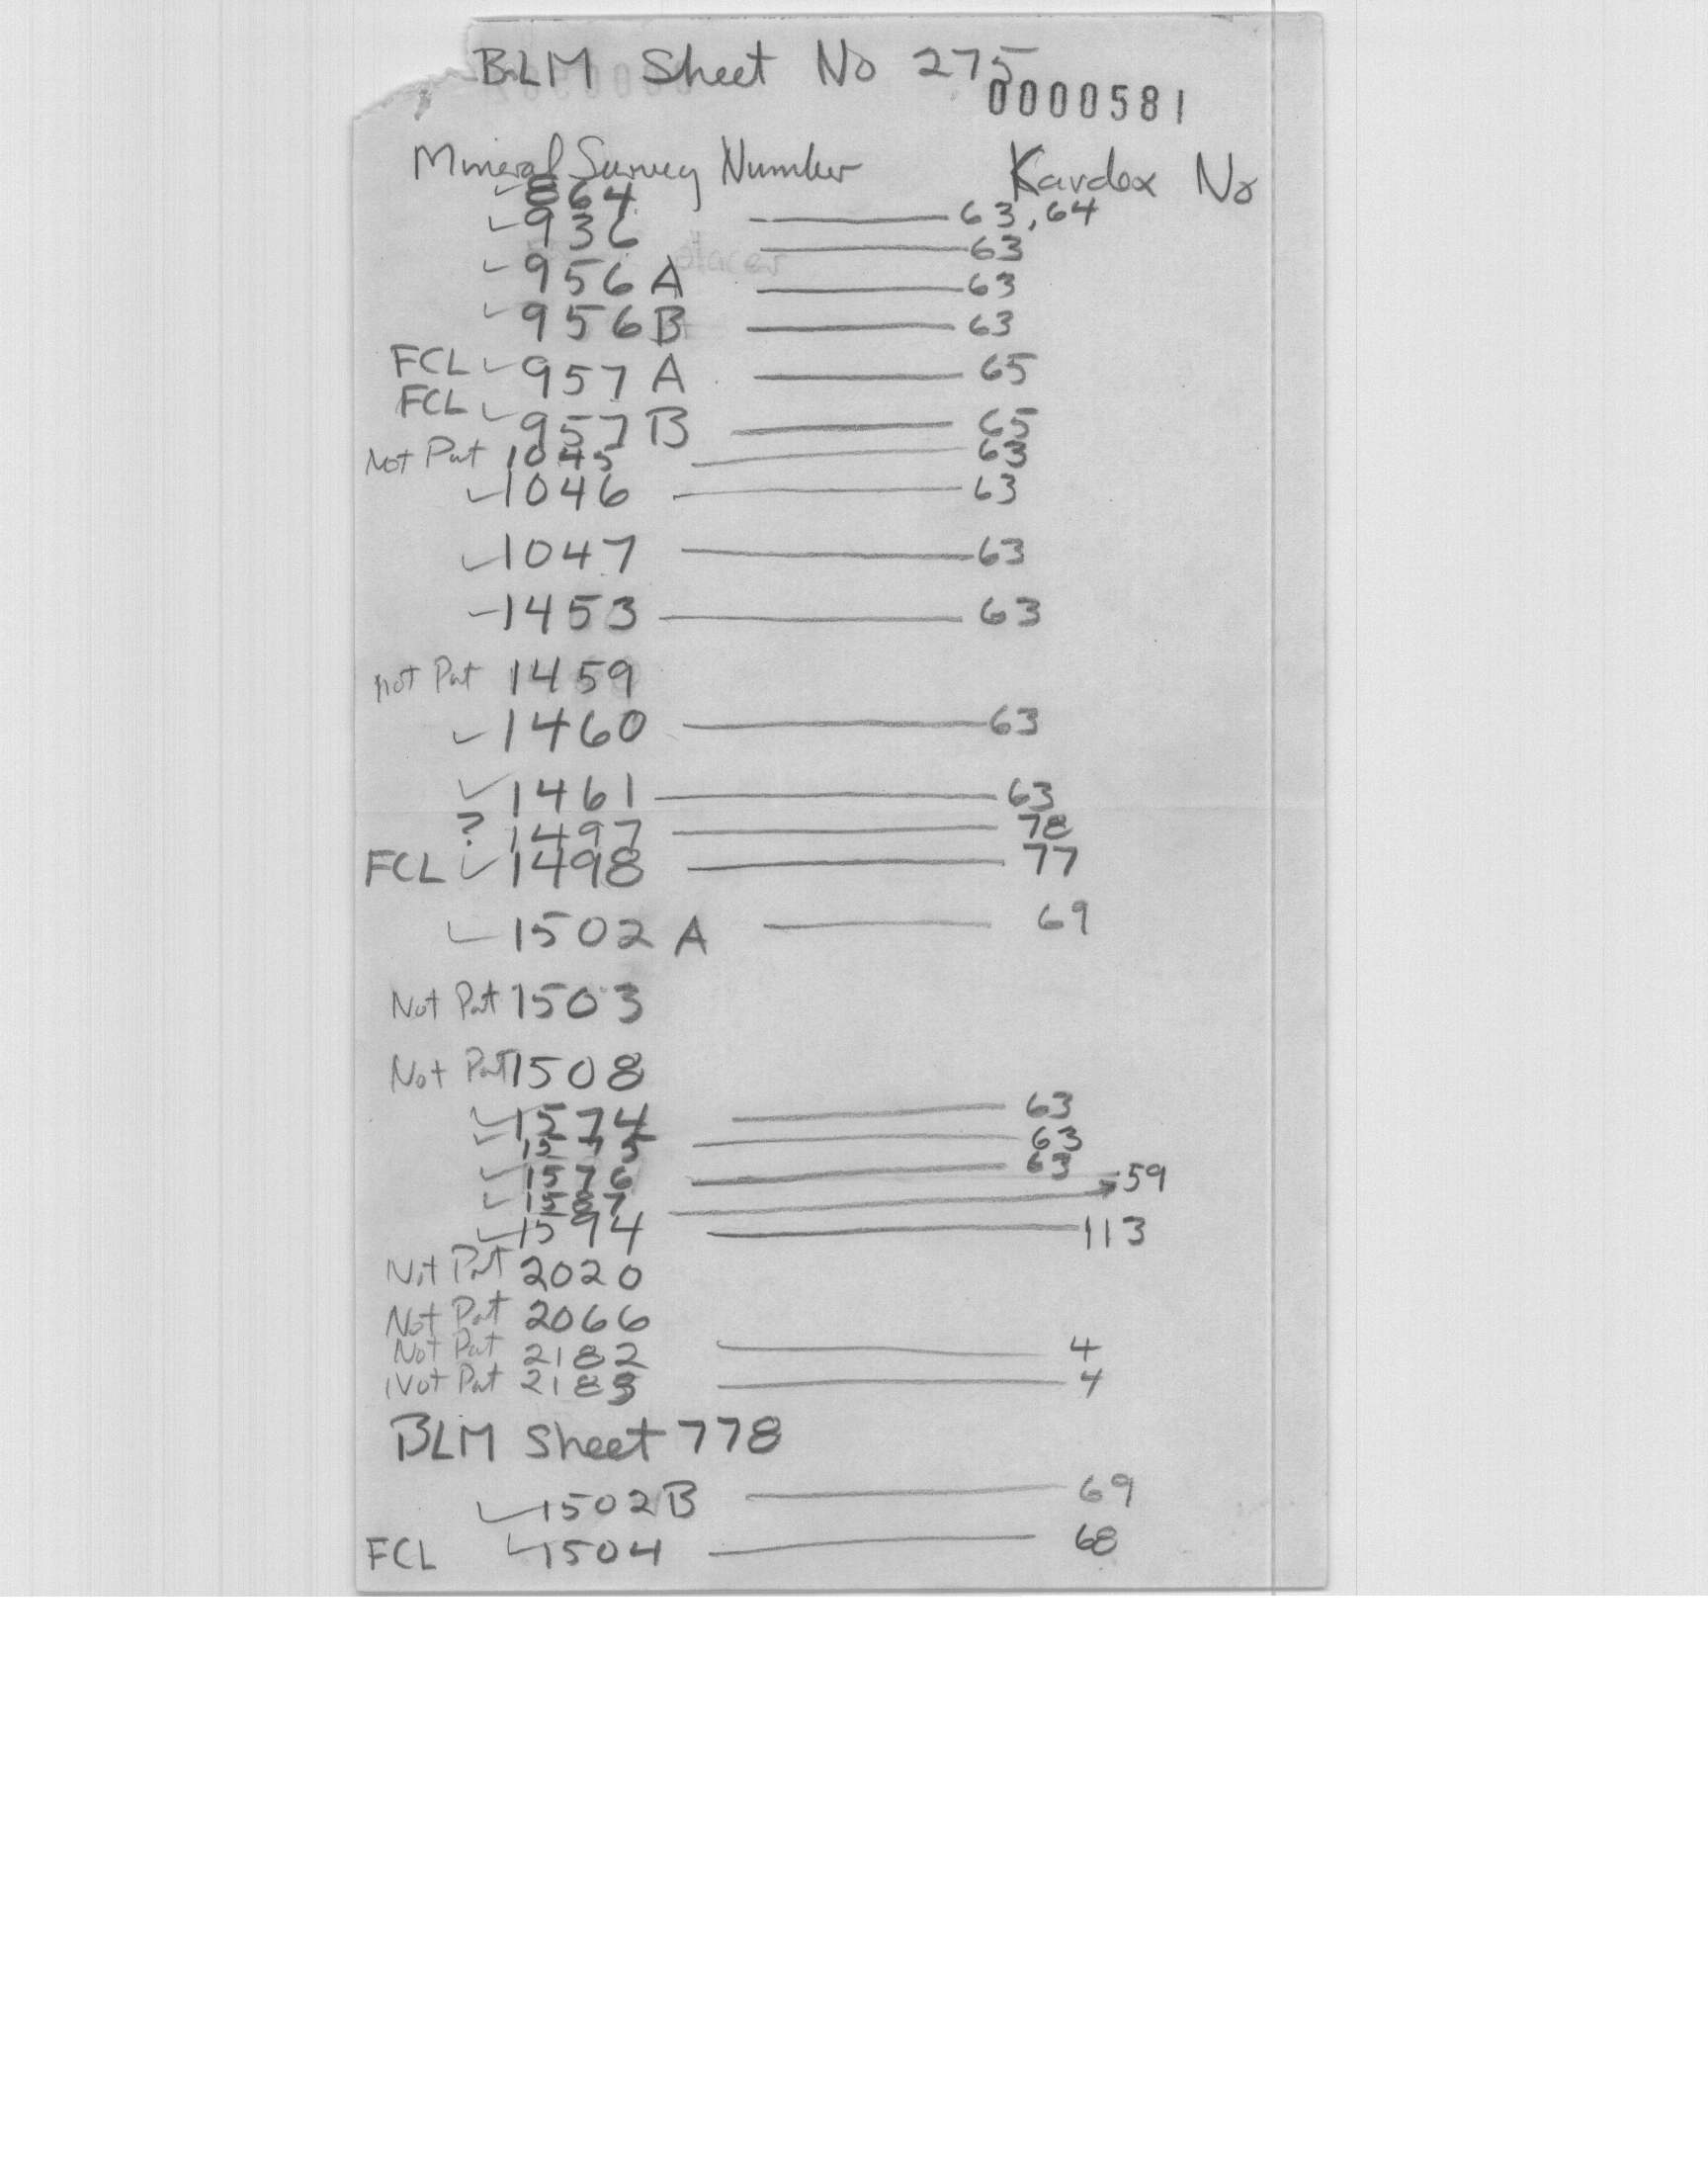 BLM Sheet No 275
0000581
Mineral Survey Number Kardex No
✓ 864 — 63, 64
✓ 936 — 63
✓ 956 A — 63
✓ 956 B — 63
FCL ✓ 957 A — 65
FCL ✓ 957 B — 65
Not Pat 1045 — 63
✓ 1046 — 63
✓ 1047 — 63
– 1453 — 63
not Pat 1459
✓ 1460 — 63
✓ 1461 — 63
? 1497 — 78
FCL ✓ 1498 — 77
✓ 1502 A — 69
Not Pat 1503
Not Pat 1508
✓ 1574 — 63
✓ 1575 — 63
✓ 1576 — 63
✓ 1587 → 59
✓ 1594 — 113
Not Pat 2020
Not Pat 2066
Not Pat 2182 — 4
Not Pat 2183 — 4
BLM Sheet 778
✓ 1502 B — 69
FCL ✓ 1504 — 68